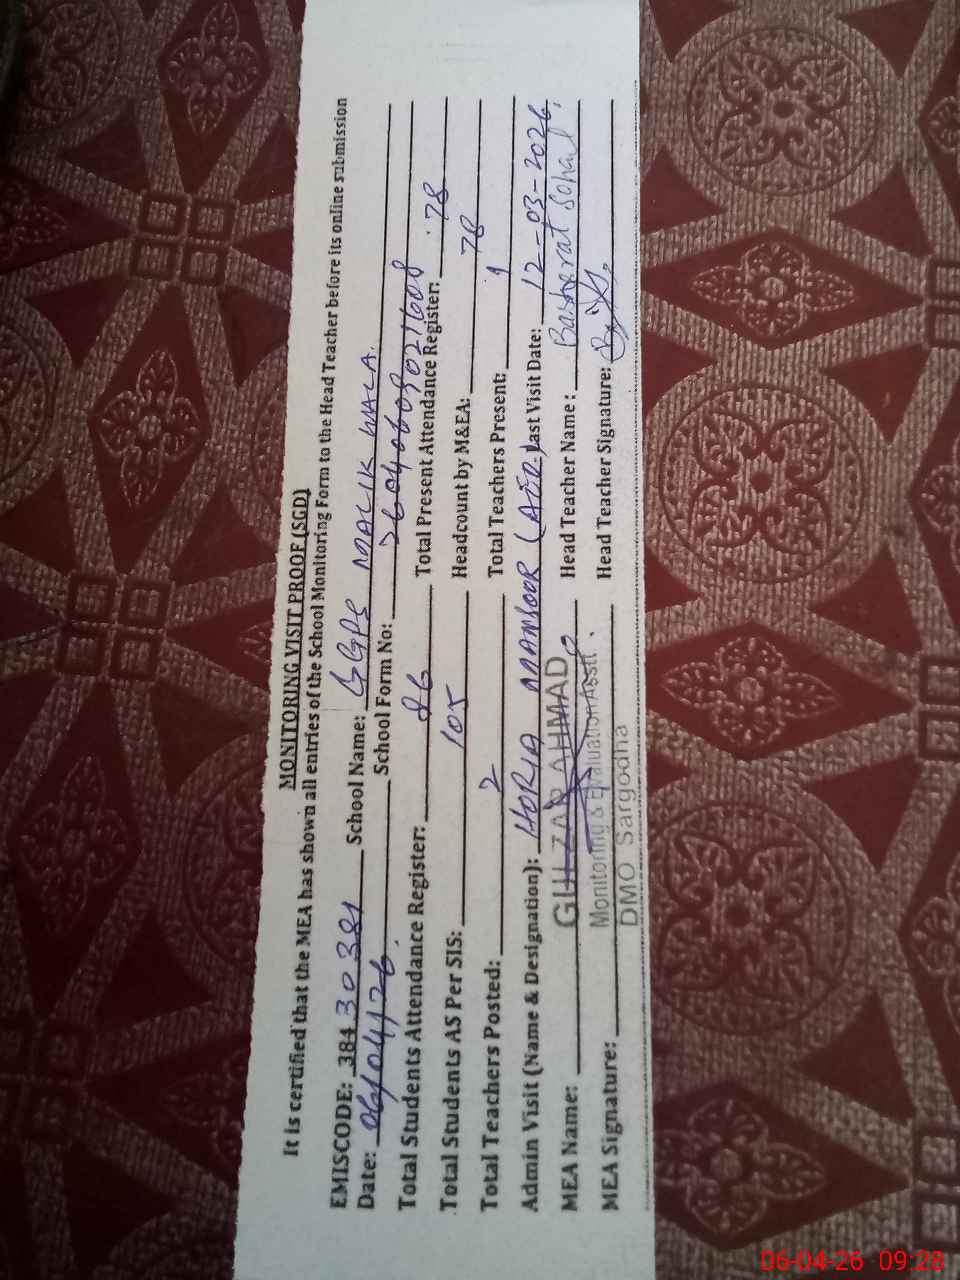 MONITORING VISIT PROOF (SGD)
It is certified that the MEA has shown all entries of the School Monitoring Form to the Head Teacher before its online submission
EMISCODE: 384 30381 School Name: GGPS MALIK WALA.
Date: 06/04/26. School Form No: 26040609021608
Total Students Attendance Register: 86 Total Present Attendance Register: 78
Total Students AS Per SIS: 105 Headcount by M&EA: 78
Total Teachers Posted: 2 Total Teachers Present: 1
Admin Visit (Name & Designation): HORIA MANSOOR (AEO) Last Visit Date: 12-03-2026
MEA Name: GULZAR AHMAD Head Teacher Name: Basharat Sohail
Monitoring & Evaluation Asstt.
MEA Signature: Head Teacher Signature:
DMO Sargodha
06-04-26 09:28